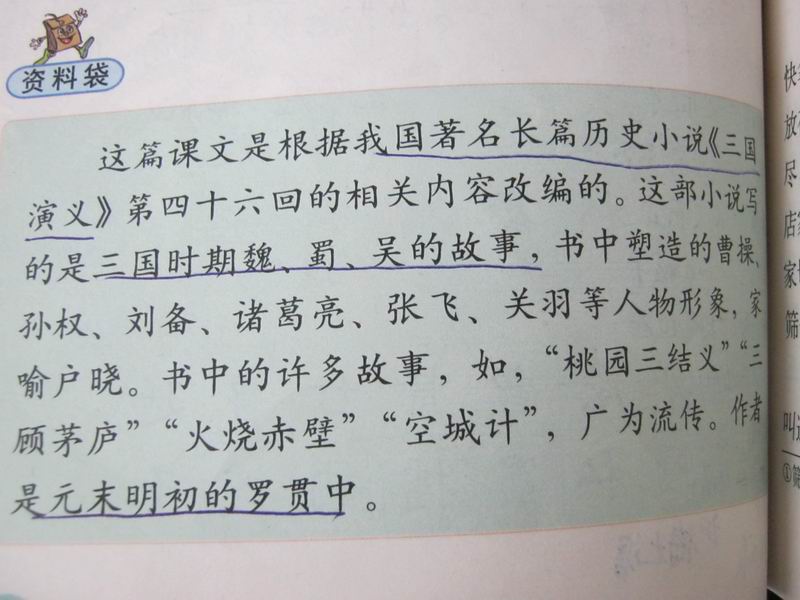 资料袋
这篇课文是根据我国著名长篇历史小说《三国
演义》第四十六回的相关内容改编的。这部小说写
的是三国时期魏、蜀、吴的故事，书中塑造的曹操、
孙权、刘备、诸葛亮、张飞、关羽等人物形象，家
喻户晓。书中的许多故事，如，“桃园三结义”“三
顾茅庐”“火烧赤壁”“空城计”，广为流传。作者
是元末明初的罗贯中。
快
放
尽
店
家
筛
叫
①